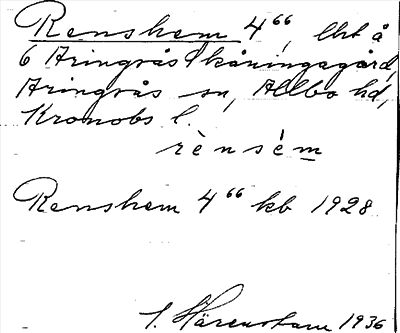 Renshem 4⁶⁶, lht å
6 Aringsås Skåningagård,
Aringsås sn, Allbo hd,
Kronobs l.
rènsém
Renshem 4⁶⁶ kb 1928
1936